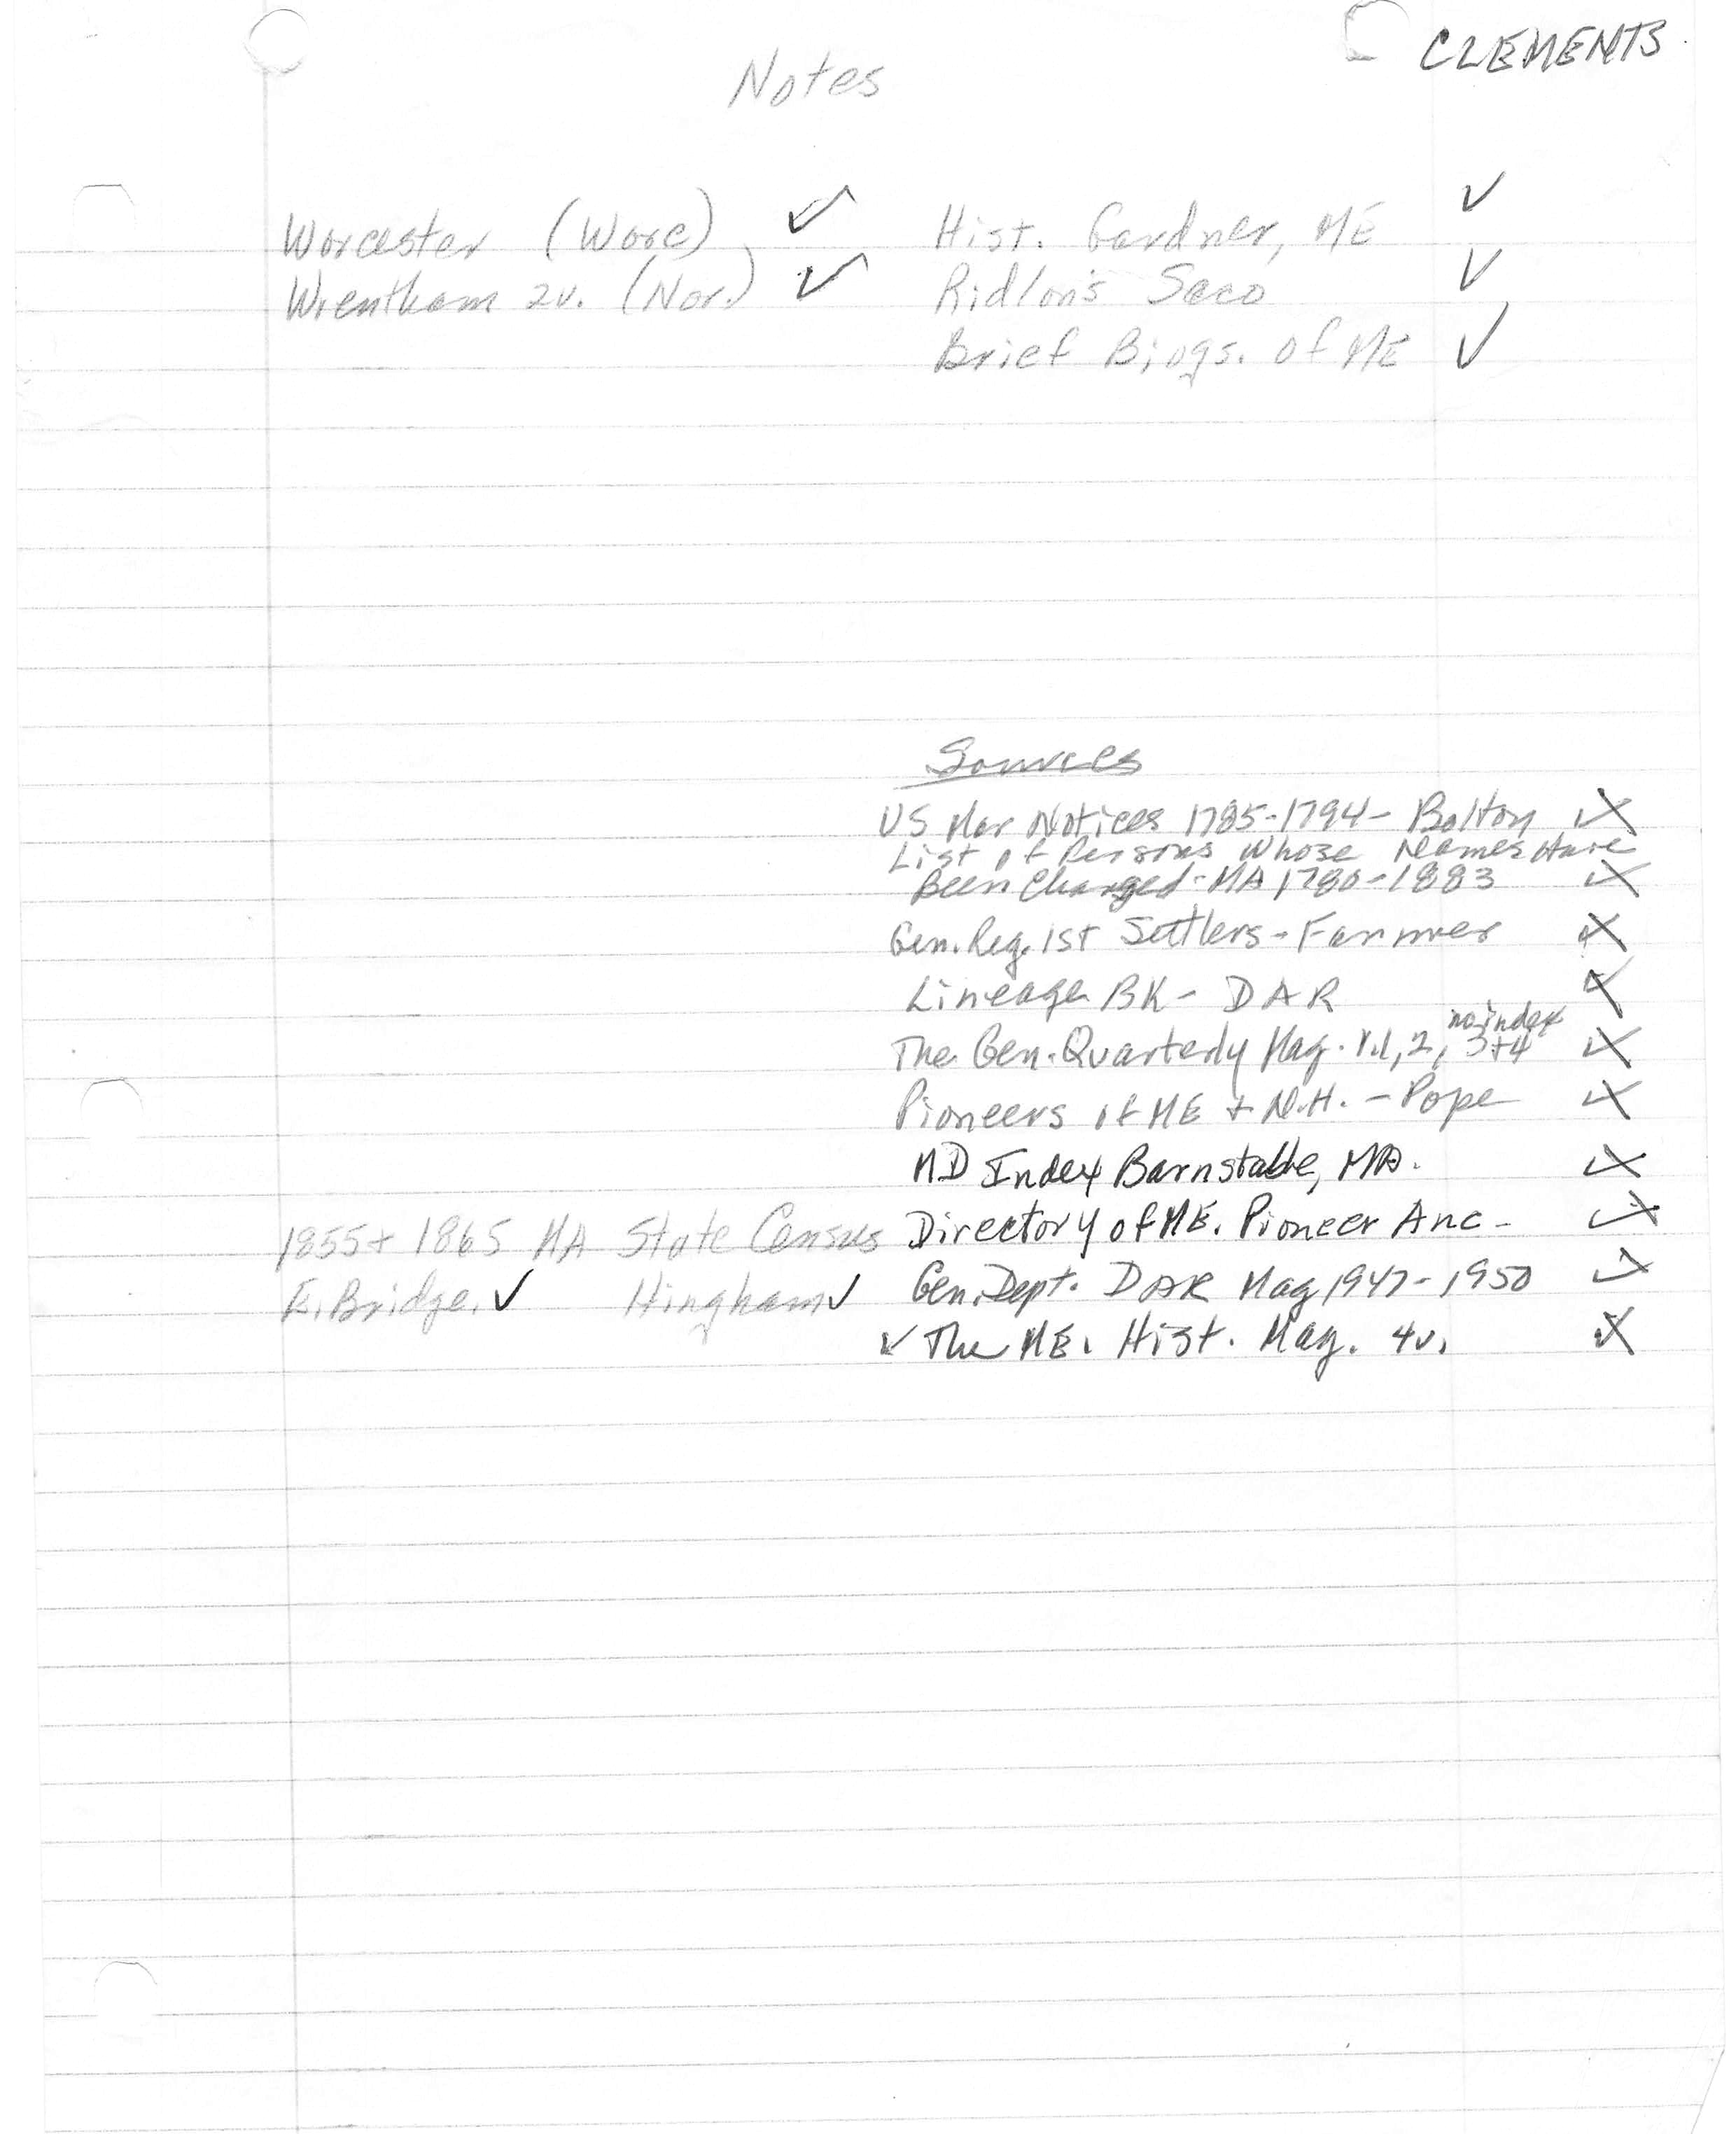 CLEMENTS
Notes
Worcester (Worc) ✓
Wrentham 2v. (Nor.) ✓
Hist. Gardner, ME ✓
Ridlon's Saco ✓
Brief Biogs. of ME ✓
Sources
US Mar Notices 1785-1794- Bolton ✓
List of Persons Whose Names Have
Been Changed - MA 1780-1883 ✓
Gen. Reg. 1st Settlers - Farmer ✓
Lineage BK - DAR ✓
no index
The Gen. Quarterly Mag. v.1, 2, 3+4 ✓
Pioneers of ME + N.H. - Pope ✓
MD Index Barnstable, MA. ✓
1855 + 1865 MA State Census
E. Bridge. ✓ Hingham ✓
Directory of ME. Pioneer Anc - ✓
Gen. Dept. DAR Mag 1947-1950 ✓
✓ The ME. Hist. Mag. 4v. ✓